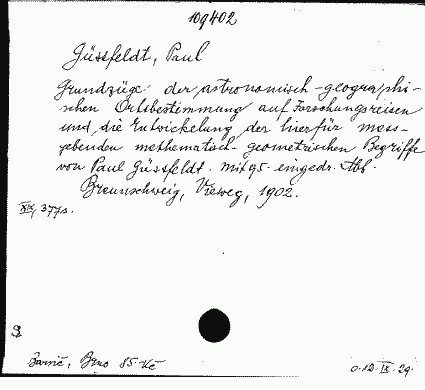 109402
Güssfeldt, Paul
Grundzüge der astronomisch-geographi-
schen Ortsbestimmung auf Forschungsreisen
und die Entwickelung der hierfür mass-
gebenden mathematisch-geometrischen Begriffe
von Paul Güssfeldt. Mit 95 eingedr. Abb.
Braunschweig, Vieweg, 1902.
XIX, 377 s.
Brno 85 Kč
0.12.IX.29.